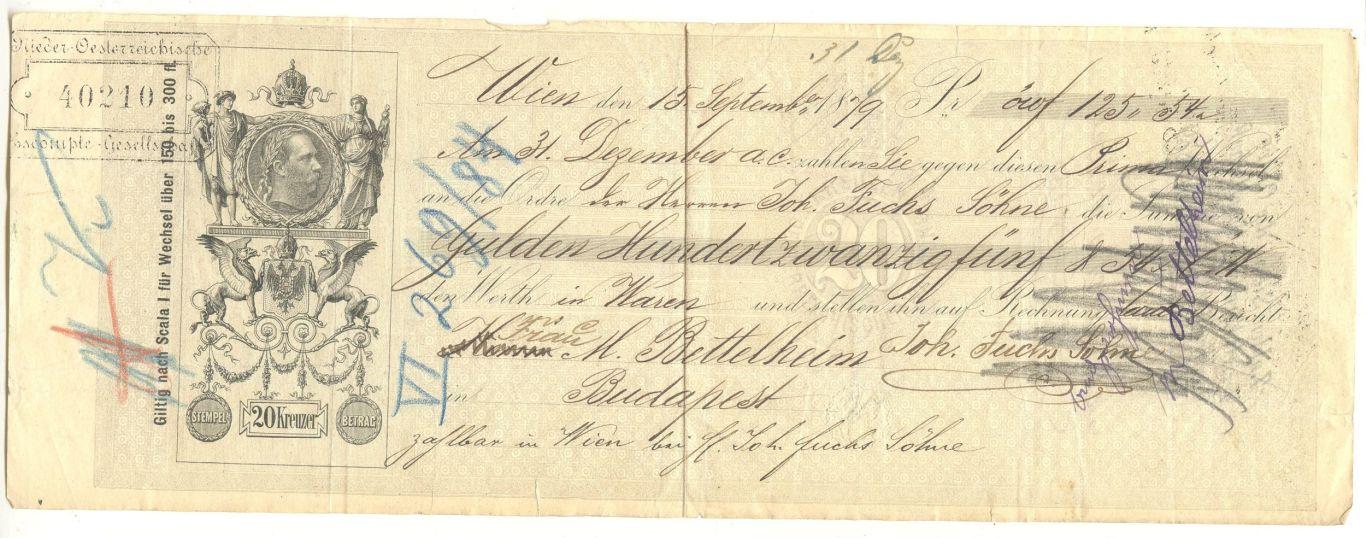 Nieder-Oesterreichische
40210
Escompte-Gesellschaft
Giltig nach Scala I für Wechsel über 150 bis 300 fl.
STEMPEL
20 Kreuzer
BETRAG
31 Dez
Wien den 15. September 1879 Pr. öwf 125, 54
Am 31. Dezember a.c. zahlen Sie gegen diesen Prima Wechsel
an die Ordre der Herren Joh. Fuchs Söhne die Summe von
Gulden Hundertzwanzigfünf & 54
den Werth in Waren und stellen ihn auf Rechnung laut Bericht
Frau M. Bettelheim Joh. Fuchs Söhne
in Budapest
zahlbar in Wien bei H. Joh. Fuchs Söhne
VI 269/84
M Bettelheim
20